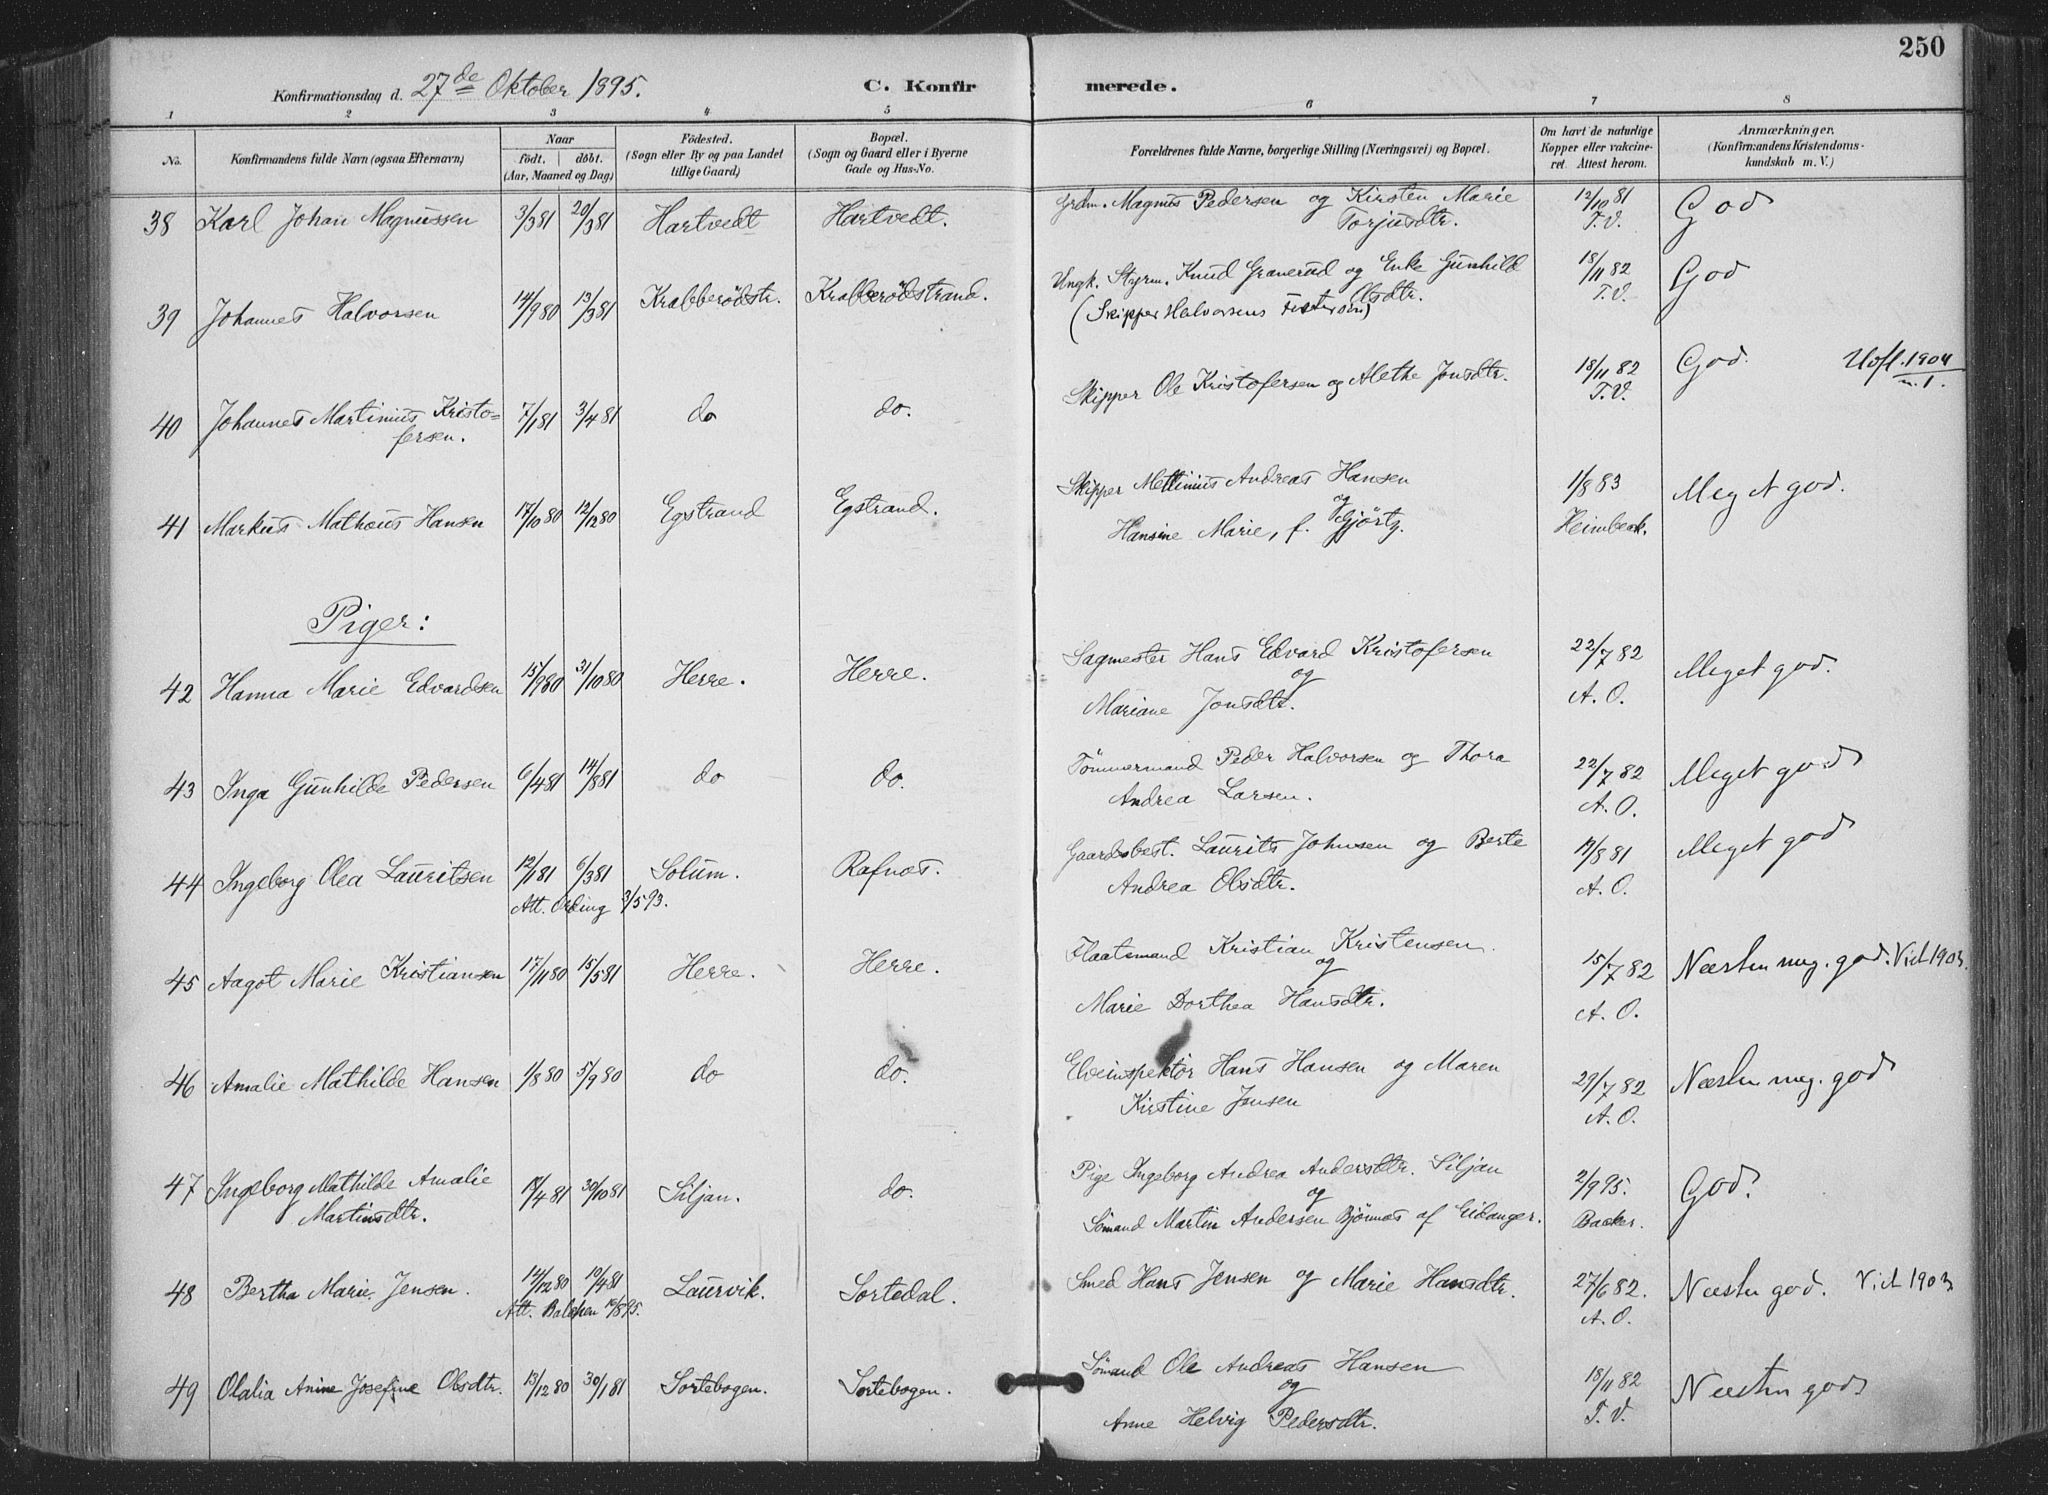 250
Konfirmationsdag d. 27de Oktober 1895. C. Konfirmerede.
1 2 3 4 5 6 7 8
No. Konfirmandens fulde Navn (ogsaa Efternavn) Naar født. døbt. (Aar, Maaned og Dag) Fødested. (Sogn eller By og paa Landet tillige Gaard) Bopæl. (Sogn og Gaard eller i Byerne Gade og Hus-No. Forældrenes fulde Navne, borgerlige Stilling (Næringsvei) og Bopæl. Om havt de naturlige Kopper eller vakcineret. Attest herom. Anmærkninger. (Konfirmandens Kristendomskundskab m. V.)
38 Karl Johan Magnussen 3/3 81 20/3 81 Hartvedt Hartvedt. Grdm. Magnus Pedersen og Kirsten Marie 12/10 81 God
Torjusdtr. T.V.
39 Johannes Halvorsen 14/9 80 13/3 81 Krabberødstr. Krabberødstrand. Ungk. Styrm. Knud Granerud og Enke Gunhild Olsdtr. 18/11 82 God
(Skipper Halvorsens) T.V.
40 Johannes Martinius Kristo- 7/1 81 3/4 81 do do. Skipper Ole Kristofersen og Alethe Jonsdtr. 18/11 82 God. Udfl. 1904
fersen. T.V.
41 Markus Mathæus Hansen 17/10 80 12/12 80 Egstrand Egstrand. Skipper Andreas Hansen 1/8 83 Meget god.
og
Hansine Marie, f. Heimbeck.
Piger:
42 Hanna Marie Edvardsen 15/9 80 31/10 80 Herre. Herre. Sagmester Hans Edvard Kristofersen 22/7 82 Meget god.
og
Mariane Jonsdtr. A. O.
43 Inga Gunhilde Pedersen 6/4 81 14/8 81 do do. Tømmermand Peder Halvorsen og Thora 22/7 82 Meget god
Andrea Larsen. A. O.
44 Ingeborg Olea Lauritsen 12/1 81 6/3 81 Solum. Rafnæs. Gaardsbest. Laurits Johnsen og Berte 17/8 81 Meget god
Att. Ording 3/5 93. Andrea Olsdtr. A. O.
45 Aagot Marie Kristiansen 17/11 80 15/5 81 Herre. Herre. Flaatemand Kristian Kristensen 15/7 82 Næsten meg. god. Vid 1903.
og
Marie Dorthea Hansdtr. A. O.
46 Amalie Mathilde Hansen 1/8 80 5/9 80 do do. Elveinspektør Hans Hansen og Maren 29/7 82 Næsten meg. god
Kirstine Jensen A. O.
47 Ingeborg Mathilde Amalie 14/4 81 30/10 81 Siljan. do. Pige Ingeborg Andrea Andersdtr. Siljan 2/9 95. God.
Martinsdtr. og
Sømand Martin Andersen Bjørnæs af Eidanger. Backer.
48 Bertha Marie Jensen. 14/12 80 10/4 81 Laurvik. Sortedal. Smed Hans Jensen og Marie Hansdtr. 27/6 82. Næsten god. Vid 1903
Att. Balchen 16/8 95. A. O.
49 Olalia Anine Josefine Olsdtr. 13/12 80 30/1 81 Sortebogen. Sortebogen. Sømand Ole Andreas Hansen 18/11 82 Næsten god
og
Anne Helvig Pedersdtr. T. V.